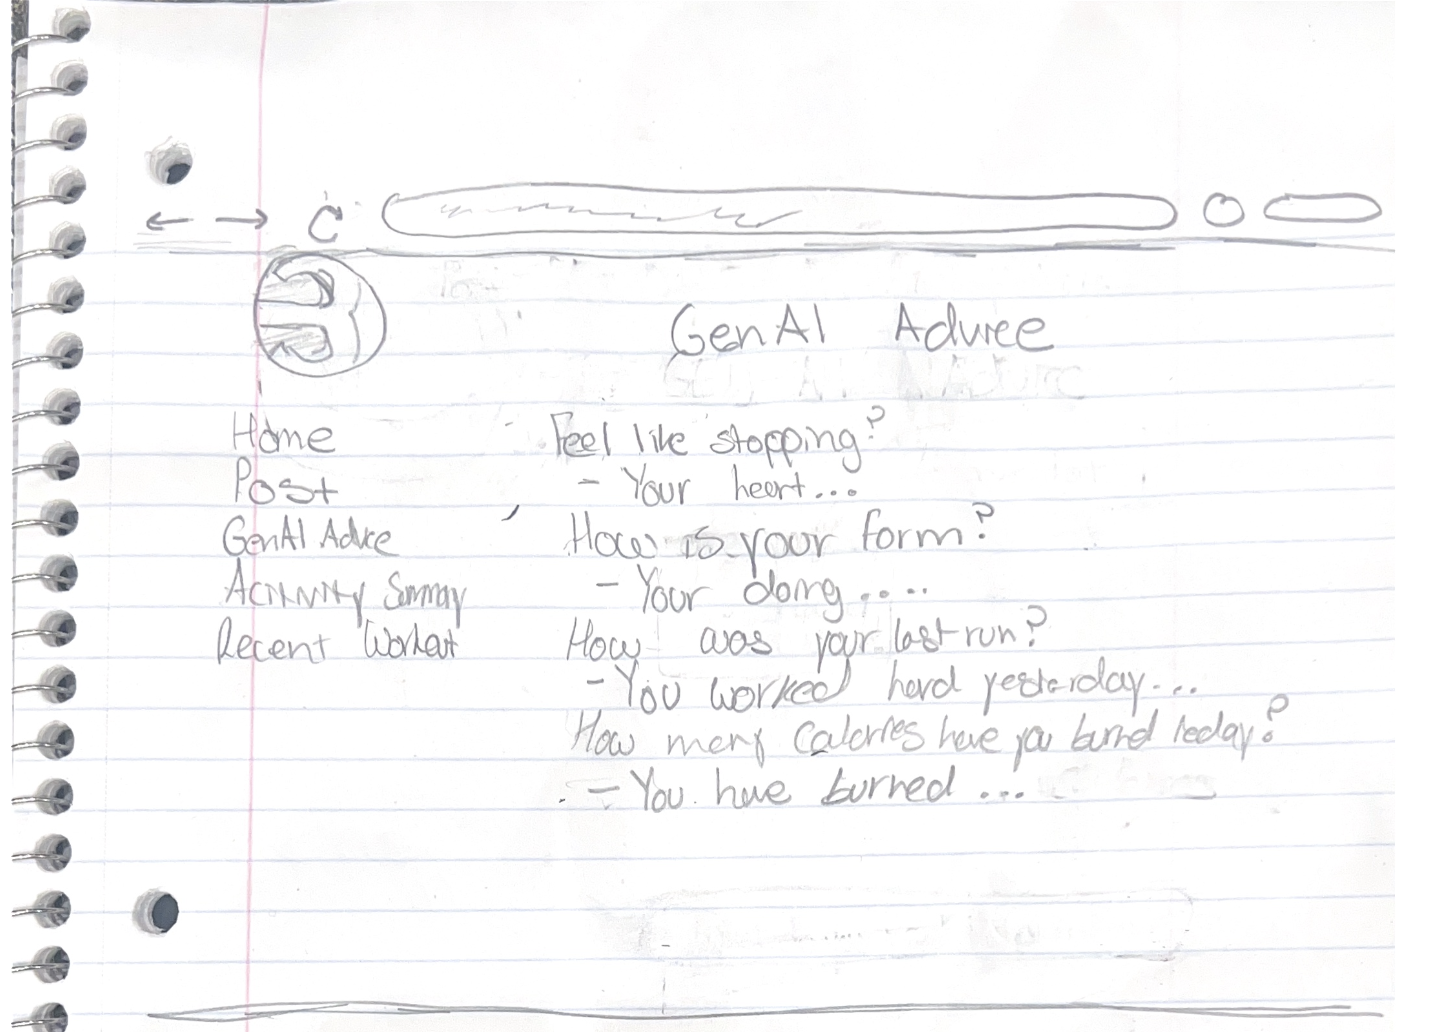 GenAI Advice
Home
Post
GenAI Advice
Activity Summary
Recent Workout
Feel like stopping?
- Your heart...
How is your form?
- Your doing....
How was your last run?
- You worked hard yesterday...
How many calories have you burned today?
- You have burned ...